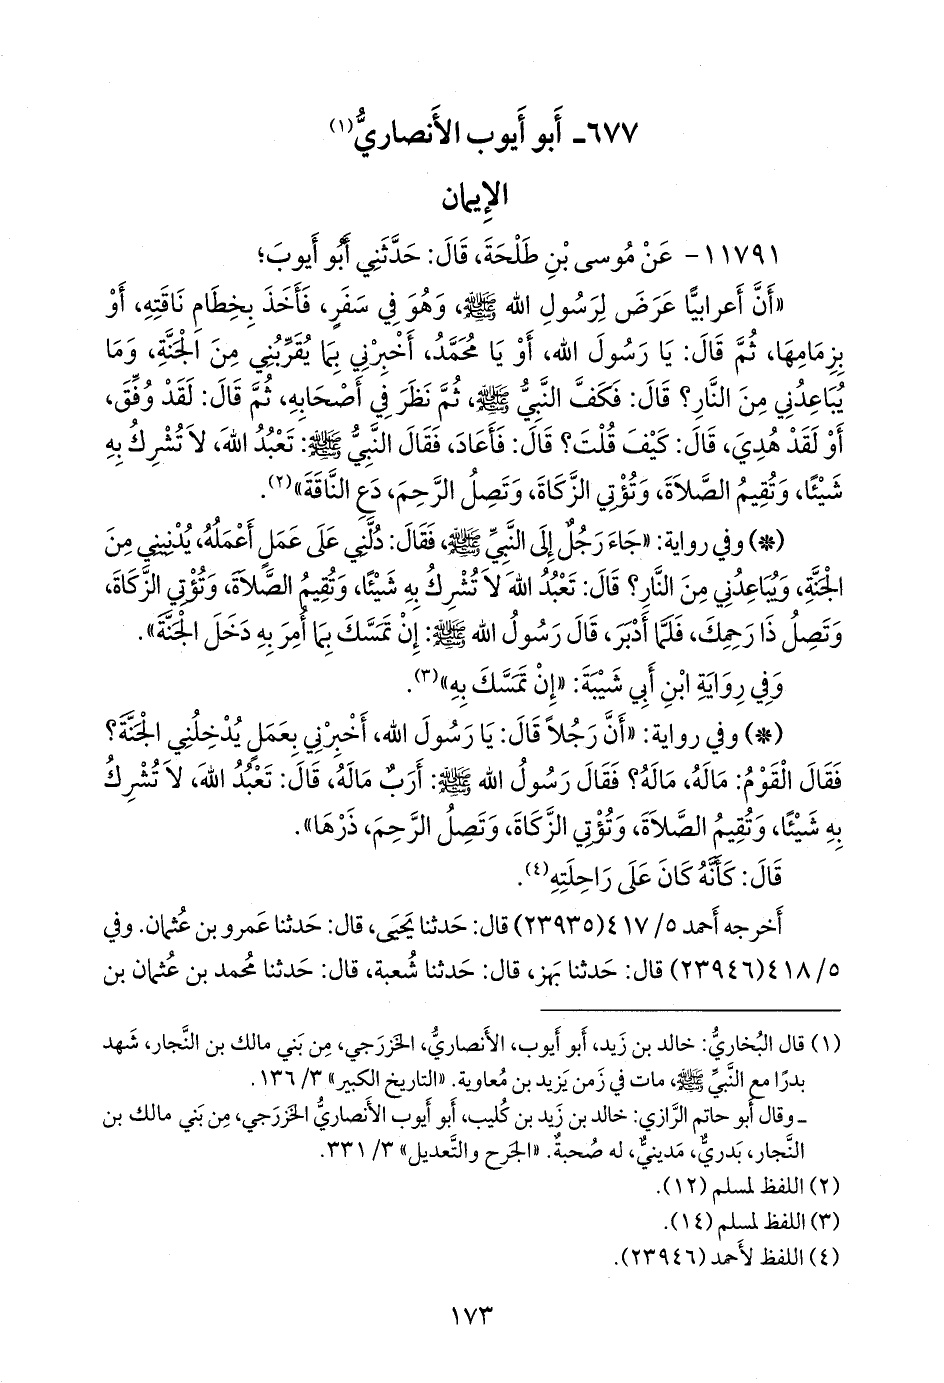 ٦٧٧ـ أَبو أَيوب الأَنصاريُّ(١)
الإِيمان
١١٧٩١- عَنْ مُوسى بْنِ طَلْحَةَ، قَالَ: حَدَّثَنِي أَبُو أَيوبَ؛
«أَنَّ أَعرابيًّا عَرَضَ لِرَسُولِ الله ﷺ، وَهُوَ فِي سَفَرٍ، فَأَخَذَ بِخِطَامِ نَاقَتِهِ، أَوْ
بِزِمَامِهَا، ثُمَّ قَالَ: يَا رَسُولَ الله، أَوْ يَا مُحَمَّدُ، أَخْبِرْنِي بِمَا يُقَرِّبُنِي مِنَ الْجَنَّةِ، وَمَا
يُبَاعِدُنِي مِنَ النَّارِ؟ قَالَ: فَكَفَّ النَّبِيُّ ﷺ، ثُمَّ نَظَرَ فِي أَصْحَابِهِ، ثُمَّ قَالَ: لَقَدْ وُفِّقَ،
أَوْ لَقَدْ هُدِيَ، قَالَ: كَيْفَ قُلْتَ؟ قَالَ: فَأَعَادَ، فَقَالَ النَّبِيُّ ﷺ: تَعْبُدُ اللهَ، لاَ تُشْرِكُ بِهِ
شَيْئًا، وَتُقِيمُ الصَّلاَةَ، وَتُؤْتِي الزَّكَاةَ، وَتَصِلُ الرَّحِمَ، دَعِ النَّاقَةَ»(٢).
(*) وفي رواية: «جَاءَ رَجُلٌ إِلَى النَّبِيِّ ﷺ، فَقَالَ: دُلَّنِي عَلَى عَمَلٍ أَعْمَلُهُ، يُدْنِينِي مِنَ
الْجَنَّةِ، وَيُبَاعِدُنِي مِنَ النَّارِ؟ قَالَ: تَعْبُدُ اللهَ لاَ تُشْرِكُ بِهِ شَيْئًا، وَتُقِيمُ الصَّلاَةَ، وَتُؤْتِي الزَّكَاةَ،
وَتَصِلُ ذَا رَحِمِكَ، فَلَمَّا أَدْبَرَ، قَالَ رَسُولُ الله ﷺ: إِنْ تَمَسَّكَ بِمَا أُمِرَ بِهِ دَخَلَ الْجَنَّةَ».
وَفِي رِوَايَةِ ابْنِ أَبِي شَيْبَةَ: «إِنْ تَمَسَّكَ بِهِ»(٣).
(*) وفي رواية: «أَنَّ رَجُلاً قَالَ: يَا رَسُولَ الله، أَخْبِرْنِي بِعَمَلٍ يُدْخِلُنِي الْجَنَّةَ؟
فَقَالَ الْقَوْمُ: مَالَهُ، مَالَهُ؟ فَقَالَ رَسُولُ الله ﷺ: أَرَبٌ مَالَهُ، قَالَ: تَعْبُدُ اللهَ، لاَ تُشْرِكُ
بِهِ شَيْئًا، وَتُقِيمُ الصَّلاَةَ، وَتُؤْتِي الزَّكَاةَ، وَتَصِلُ الرَّحِمَ، ذَرْهَا».
قَالَ: كَأَنَّهُ كَانَ عَلَى رَاحِلَتِهِ(٤).
أَخرجه أحمد ٥/ ٤١٧(٢٣٩٣٥) قال: حَدثنا يَحيَى، قال: حَدثنا عَمرو بن عُثمان. وفي
٥/ ٤١٨(٢٣٩٤٦) قال: حَدثنا بَهز، قال: حَدثنا شُعبة، قال: حَدثنا مُحمد بن عُثمان بن
(١) قال البُخاريُّ: خالد بن زَيد، أَبو أَيوب، الأَنصاريُّ، الخَزرَجي، مِن بَني مالك بن النَّجار، شَهد
بدرًا مع النَّبيِّ ﷺ، مات في زَمن يَزيد بن مُعاوية. «التاريخ الكبير» ٣/ ١٣٦.
ـ وقال أَبو حاتم الرَّازي: خالد بن زَيد بن كُليب، أَبو أَيوب الأَنصاريُّ الخَزرَجي، مِن بَني مالك بن
النَّجار، بَدريٌّ، مَدينيٌّ، له صُحبةٌ. «الجَرح والتَّعديل» ٣/ ٣٣١.
(٢) اللفظ لمسلم (١٢).
(٣) اللفظ لمسلم (١٤).
(٤) اللفظ لأَحمد (٢٣٩٤٦).
١٧٣